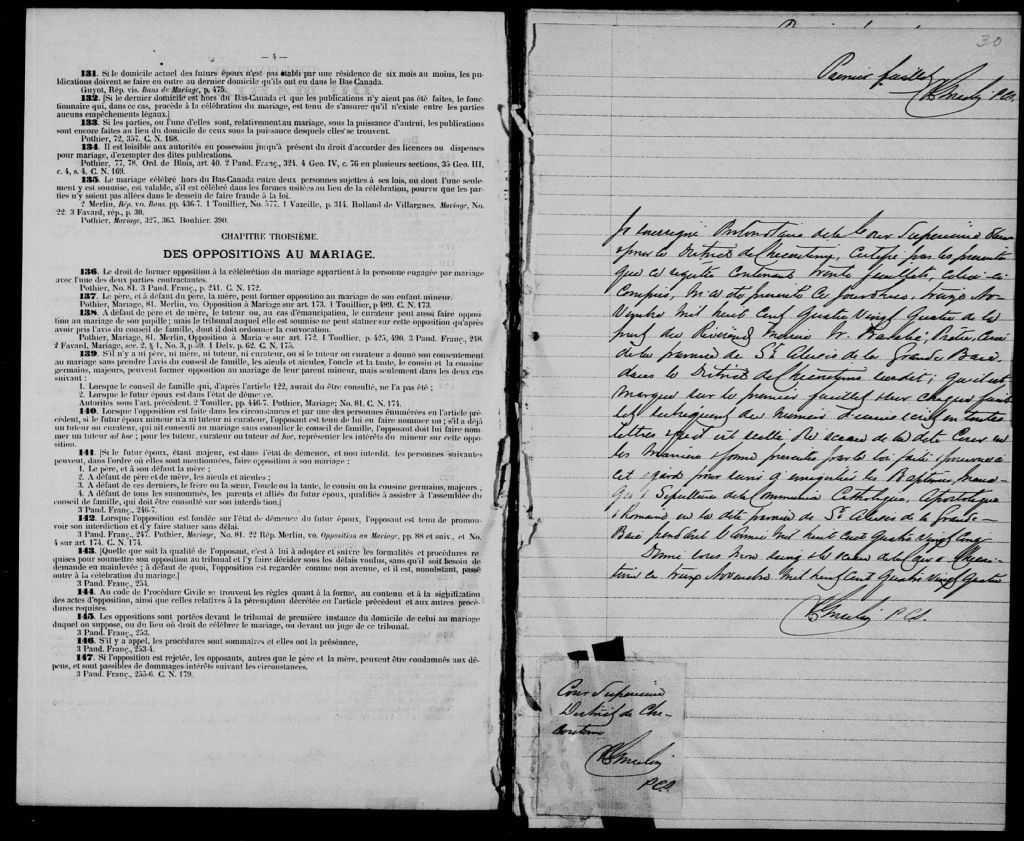 — 4 —
131. Si le domicile actuel des futurs époux n'est pas établi par une résidence de six mois au moins, les pu-
blications doivent se faire en outre au dernier domicile qu'ils ont eu dans le Bas-Canada.
Guyot, Rép. vis. Bans de Mariage, p. 475.
132. [Si le dernier domicile est hors du Bas-Canada et que les publications n'y aient pas été faites, le fonc-
tionnaire qui, dans ce cas, procède à la célébration du mariage, est tenu de s'assurer qu'il n'existe entre les parties
aucuns empêchements légaux.]
133. Si les parties, ou l'une d'elles sont, relativement au mariage, sous la puissance d'autrui, les publications
sont encore faites au lieu du domicile de ceux sous la puissance desquels elles se trouvent.
Pothier, 72, 357. C. N. 168.
134. Il est loisible aux autorités en possession jusqu'à présent du droit d'accorder des licences ou dispenses
pour mariage, d'exempter des dites publications.
Pothier, 77, 78. Ord. de Blois, art. 40. 2 Pand. Franç., 324. 4 Geo. IV, c. 76 en plusieurs sections, 35 Geo. III,
c. 4, s. 4. C. N. 169.
135. Le mariage célébré hors du Bas-Canada entre deux personnes sujettes à ses lois, ou dont l'une seule-
ment y est soumise, est valable, s'il est célébré dans les formes usitées au lieu de la célébration, pourvu que les par-
ties n'y soient pas allées dans le dessein de faire fraude à la loi.
2 Merlin, Rép. vo. Bans pp. 436-7. 1 Touillier, No. 577. 1 Vazeille, p. 314. Rolland de Villargues, Mariage, No.
22. 3 Favard, rép., p. 30.
Pothier, Mariage, 327, 363. Bouhier. 390.
CHAPITRE TROISIÈME.
DES OPPOSITIONS AU MARIAGE.
136. Le droit de former opposition à la célébration du mariage appartient à la personne engagée par mariage
avec l'une des deux parties contractantes.
Pothier, No. 81. 3 Pand. Franç., p. 241. C. N. 172.
137. Le père, et à défaut du père, la mère, peut former opposition au mariage de son enfant mineur.
Pothier, Mariage, 81. Merlin, vo. Opposition à Mariage sur art. 173. 1 Touillier, p 489. C. N. 173.
138. A défaut de père et de mère, le tuteur, ou, au cas d'émancipation, le curateur peut aussi faire opposi-
tion au mariage de son pupille ; mais le tribunal auquel elle est soumise ne peut statuer sur cette opposition qu'après
avoir pris l'avis du conseil de famille, dont il doit ordonner la convocation.
Pothier, Mariage, 81. Merlin, Opposition à Mariage sur art. 172. 1 Toullier, p. 425, 490. 3 Pand. Franç., 248.
2 Favard, Mariage, sec. 2, § 1, No. 3, p. 59. 1 Delv. p. 62. C. N. 175.
139. S'il n'y a ni père, ni mère, ni tuteur, ni curateur, ou si le tuteur ou curateur a donné son consentement
au mariage sans prendre l'avis du conseil de famille, les aïeuls et aïeules, l'oncle et la tante, le cousin et la cousine
germains, majeurs, peuvent former opposition au mariage de leur parent mineur, mais seulement dans les deux cas
suivant :
1. Lorsque le conseil de famille qui, d'après l'article 122, aurait du être consulté, ne l'a pas été ;
2. Lorsque le futur époux est dans l'état de démence.
Autorités sous l'art. précédent. 2 Touiller, pp. 446-7. Pothier, Mariage; No. 81. C. N. 174.
140. Lorsque l'opposition est faite dans les circonstances et par une des personnes énumérées en l'article pré-
cédent, si le futur époux mineur n'a ni tuteur ni curateur, l'opposant est tenu de lui en faire nommer un ; s'il a déjà
un tuteur ou curateur, qui ait consenti au mariage sans consulter le conseil de famille, l'opposant doit lui faire nom-
mer un tuteur ad hoc ; pour les tuteur, curateur ou tuteur ad hor, représenter les intérêts du mineur sur cette oppo-
sition.
141. [Si le futur époux, étant majeur, est dans l'état de démence, et non interdit, les personnes suivantes
peuvent, dans l'ordre où elles sont mentionnées, faire opposition à son mariage :
1. Le père, et à son défaut la mère ;
2. A défaut de père et de mère, les aïeuls et aïeules ;
3. A défaut de ces derniers, le frère ou la sœur, l'oncle ou la tante, le cousin ou la cousine germains, majeurs ;
4. A défaut de tous les susnommés, les parents et alliés du futur époux, qualifiés à assister à l'assemblée du
conseil de famille, qui doit être consulté sur son interdiction.]
3 Pand. Franç., 246-7.
142. Lorsque l'opposition est fondée sur l'état de démence du futur époux, l'opposant est tenu de promou-
voir son interdiction et d'y faire statuer sans délai.
3 Pand. Franç., 247. Pothier, Mariage, No. 81. 22 Rép. Merlin, vo. Opposition au Mariage, pp. 88 et suiv., et No.
4 sur art 174. C. N. 174.
143. [Quelque que soit la qualité de l'opposant, c'est à lui à adopter et suivre les formalités et procédures re-
quises pour soumettre son opposition au tribunal et l'y faire décider sous les délais voulus, sans qu'il soit besoin de
demande en mainlevée ; à défaut de quoi, l'opposition est regardée comme non avenue, et il est, nonobstant, passé
outre à la célébration du mariage.]
3 Pand. Franç., 254.
144. Au code de Procédure Civile se trouvent les règles quant à la forme, au contenu et à la signification
des actes d'opposition, ainsi que celles relatives à la péremption décrétée en l'article précédent et aux autres procé-
dures requises.
145. Les oppositions sont portées devant le tribunal de première instance du domicile de celui au mariage
duquel on suppose, ou du lieu où droit de célébrer le mariage, ou devant un juge de ce tribunal.
3 Pand. Franç., 253.
146. S'il y a appel, les procédures sont sommaires et elles ont la préséance,
3 Pand. Franç., 253-4.
147. Si l'opposition est rejetée, les opposants, autres que le père et la mère, peuvent être condamnés aux dé-
pens, et sont passibles de dommages-intérêts suivant les circonstances.
3 Pand. Franç., 255-6. C. N. 179.
30
Premier feuillet
P.C.S.
Je soussigné Protonotaire de la Cour Supérieure dans
& pour le District de Chicoutimy, Certifie par les présentes
que ce registre contenant trente feuillets, celui-ci
Compris, m'a été présenté ce jourd'hui, treize No-
vembre mil huit Cent Quatre Vingt Quatre de la
part du Révérend Messire Prêtre, Curé
de la paroisse de St Alexis de la Grande Baie
dans le District de Chicoutimi susdit ; qu'il est
marqué sur le premier feuillet & sur chaque feuil-
let subséquent du numéro d'icelui écrit en toutes
lettres & qu'il est scellé du sceau de la dite Cour en
la manière & forme prescrite par la loi faite & pourvue à
cet égard pour servir à enregistrer les Baptêmes, Maria-
ges & Sépultures de la Communion Catholique, Apostolique
& Romaine en la dite paroisse de St Alexis de la Grande-
Baie pendant l'année mil huit Cent Quatre Vingt Cinq
Donné sous mon seing & le sceau de la Cour à Chicou-
timi ce treize Novembre mil huit Cent Quatre Vingt Quatre
P.C.S.
Cour Supérieure
District de Chi-
coutimi
P.C.S.